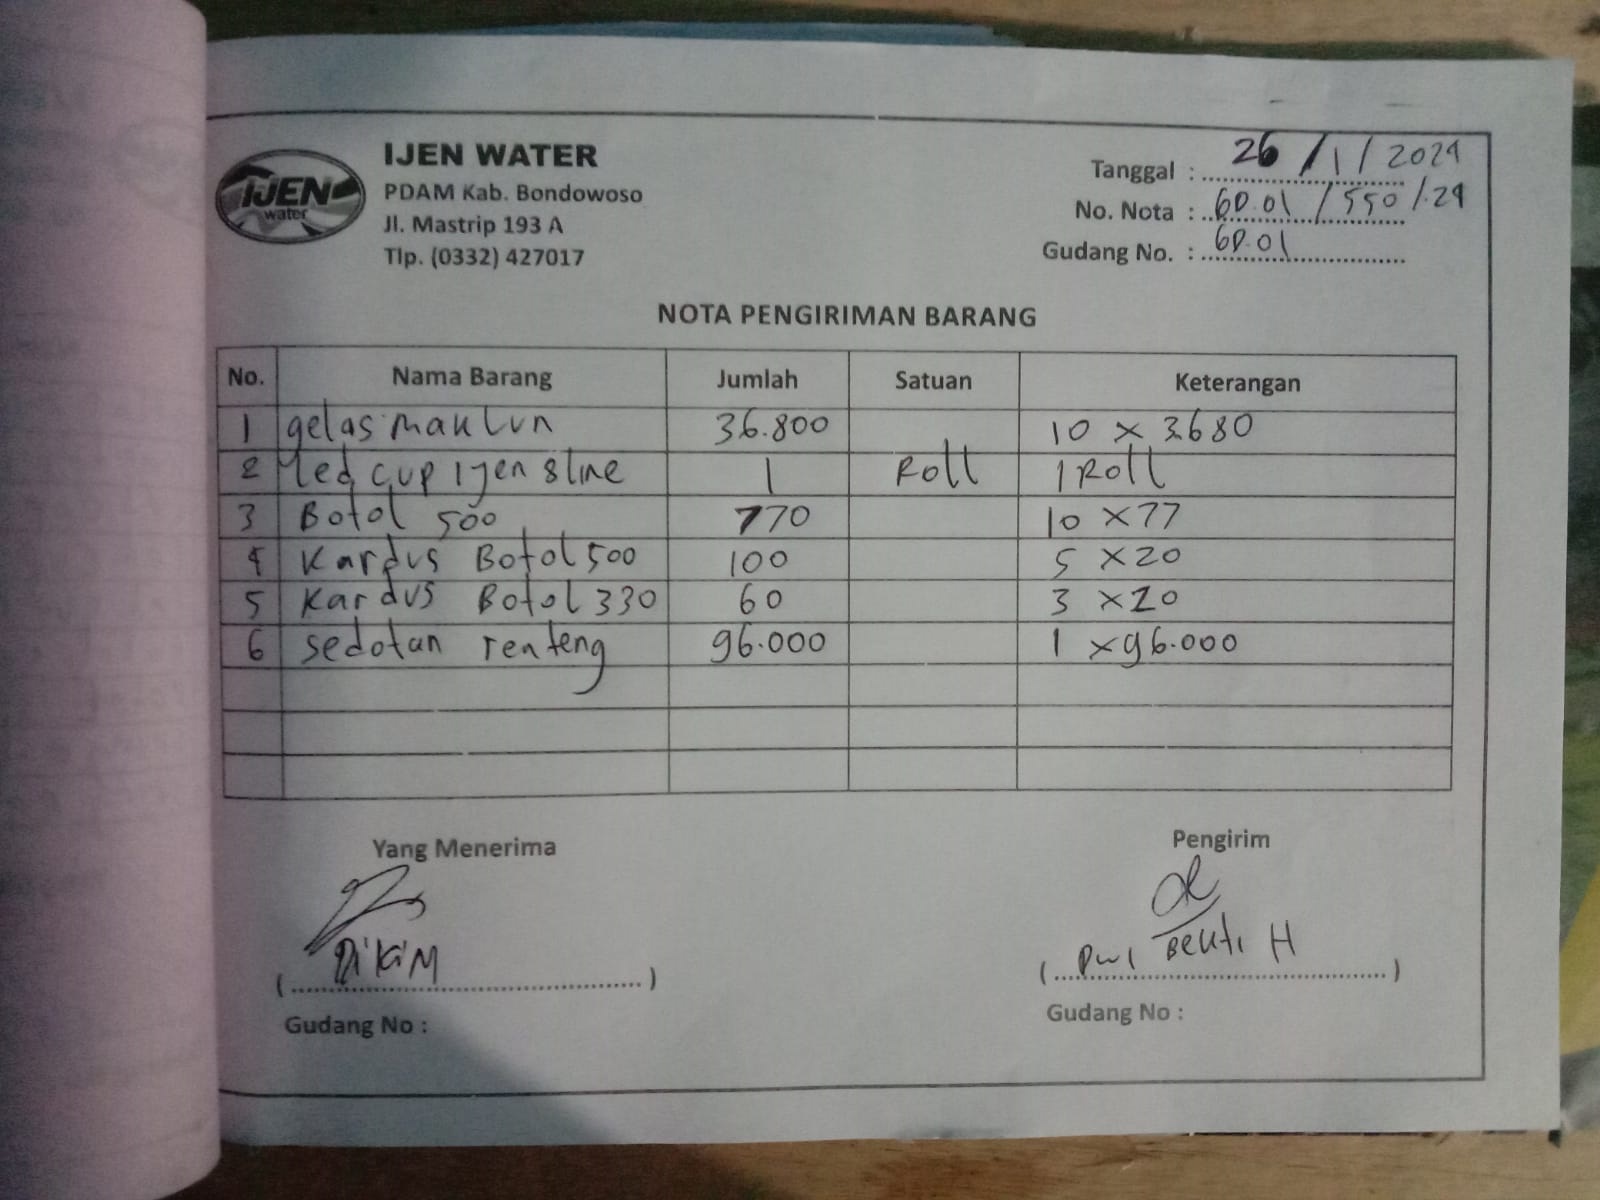 IJEN
water
IJEN WATER
PDAM Kab. Bondowoso
Jl. Mastrip 193 A
Tlp. (0332) 427017
Tanggal : 26/1/2024
No. Nota : 6D.01/550/.24
Gudang No. : 6D.01
NOTA PENGIRIMAN BARANG
No. Nama Barang Jumlah Satuan Keterangan
1 gelas maklun 36.800 10 x 3.680
2 led cup ijen 8 line 1 Roll 1 Roll
3 Botol 500 770 10 x 77
4 Kardus Botol 500 100 5 x 20
5 Kardus Botol 330 60 3 x 20
6 sedotan renteng 96.000 1 x 96.000
Yang Menerima
Pengirim
(                    )
( Dwi Bekti H )
Gudang No :
Gudang No :